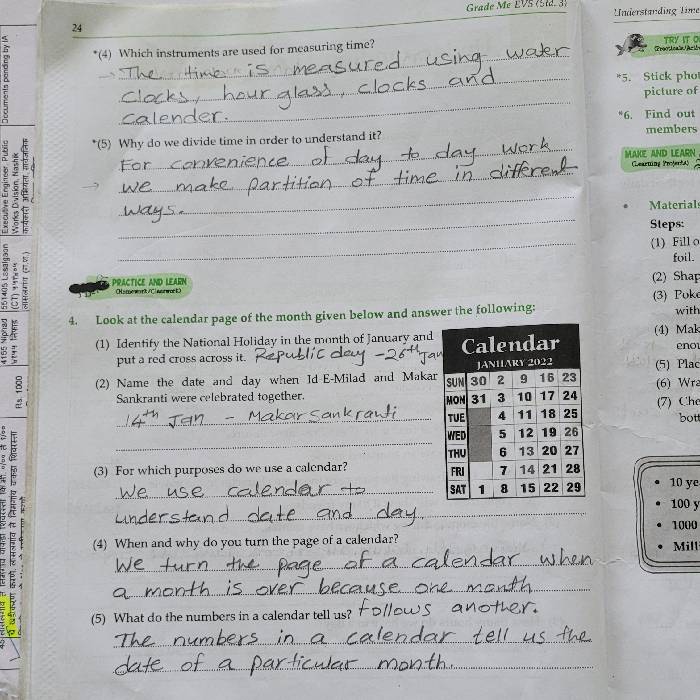 Grade Me EVS (Std. 3)
24
*(4) Which instruments are used for measuring time?
→ The time is measured using water
clocks, hour glass, clocks and
calender.
*(5) Why do we divide time in order to understand it?
For convenience of day to day work
→ we make partition of time in different
ways.
PRACTICE AND LEARN
(Homework/Classwork)
4. Look at the calendar page of the month given below and answer the following:
(1) Identify the National Holiday in the month of January and
put a red cross across it. Republic day - 26th Jan
(2) Name the date and day when Id-E-Milad and Makar
Sankranti were celebrated together.
14th Jan - Makar Sankranti
(3) For which purposes do we use a calendar?
We use calendar to
understand date and day
Calendar
JANUARY 2022
SUN 30 2 9 16 23
MON 31 3 10 17 24
TUE 4 11 18 25
WED 5 12 19 26
THU 6 13 20 27
FRI 7 14 21 28
SAT 1 8 15 22 29
(4) When and why do you turn the page of a calendar?
We turn the page of a calendar when
a month is over because one month
follows another.
(5) What do the numbers in a calendar tell us?
The numbers in a calendar tell us the
date of a particular month.
Understanding Time
TRY IT O
*5. Stick phot
picture of
*6. Find out
members
MAKE AND LEARN
(Learning Projects)
• Materials
Steps:
(1) Fill o
foil.
(2) Shap
(3) Poke
with
(4) Mak
enou
(5) Plac
(6) Wra
(7) Che
bott
• 10 ye
• 100 y
• 1000
• Mill
Documents pending by IA
Executive Engineer, Public
Works Division, Nashik
551405 Lasalgaon
4155 Niphad
Rs. 1000